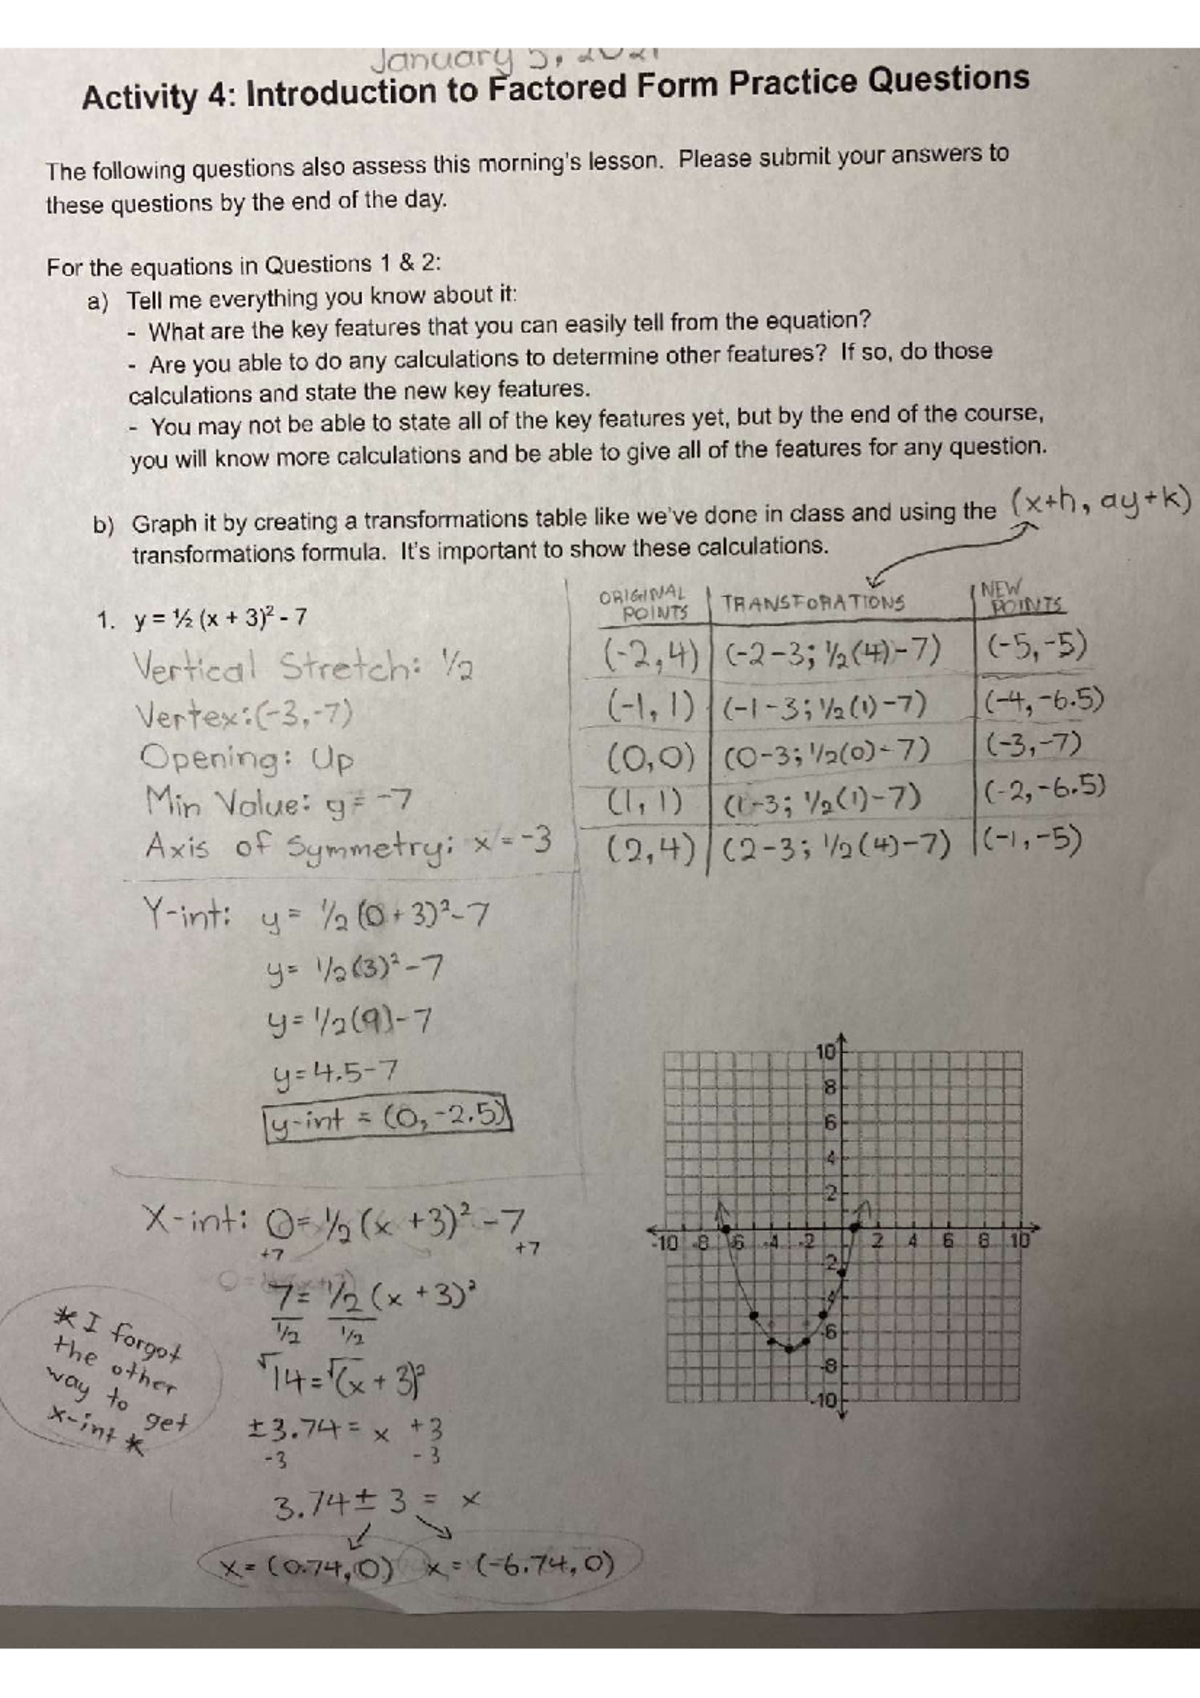 January 5, 2021
Activity 4: Introduction to Factored Form Practice Questions
The following questions also assess this morning's lesson. Please submit your answers to
these questions by the end of the day.
For the equations in Questions 1 & 2:
a) Tell me everything you know about it:
- What are the key features that you can easily tell from the equation?
- Are you able to do any calculations to determine other features? If so, do those
calculations and state the new key features.
- You may not be able to state all of the key features yet, but by the end of the course,
you will know more calculations and be able to give all of the features for any question.
b) Graph it by creating a transformations table like we've done in class and using the (x+h, ay+k)
transformations formula. It's important to show these calculations.
1. y = ½ (x + 3)² - 7
Vertical Stretch: 1/2
Vertex:(-3,-7)
Opening: Up
Min Value: y = -7
Axis of Symmetry: x = -3
ORIGINAL POINTS | TRANSFORATIONS | NEW POINTS
(-2,4) | (-2-3; 1/2(4)-7) | (-5,-5)
(-1,1) | (-1-3; 1/2(1)-7) | (-4,-6.5)
(0,0) | (0-3; 1/2(0)-7) | (-3,-7)
(1,1) | (1-3; 1/2(1)-7) | (-2,-6.5)
(2,4) | (2-3; 1/2(4)-7) | (-1,-5)
Y-int: y = 1/2 (0+3)²-7
y = 1/2(3)²-7
y = 1/2(9)-7
y = 4.5-7
y-int = (0,-2.5)
10
8
6
4
2
-10 -8 -6 -4 -2 2 4 6 8 10
-2
-4
-6
-8
-10
X-int: 0 = 1/2 (x +3)² -7
+7 +7
7 = 1/2 (x +3)²
1/2 1/2
√14 = √(x + 3)²
±3.74 = x +3
-3 -3
3.74 ± 3 = x
x = (0.74,0) x = (-6.74,0)
* I forgot
the other
way to get
x-int *